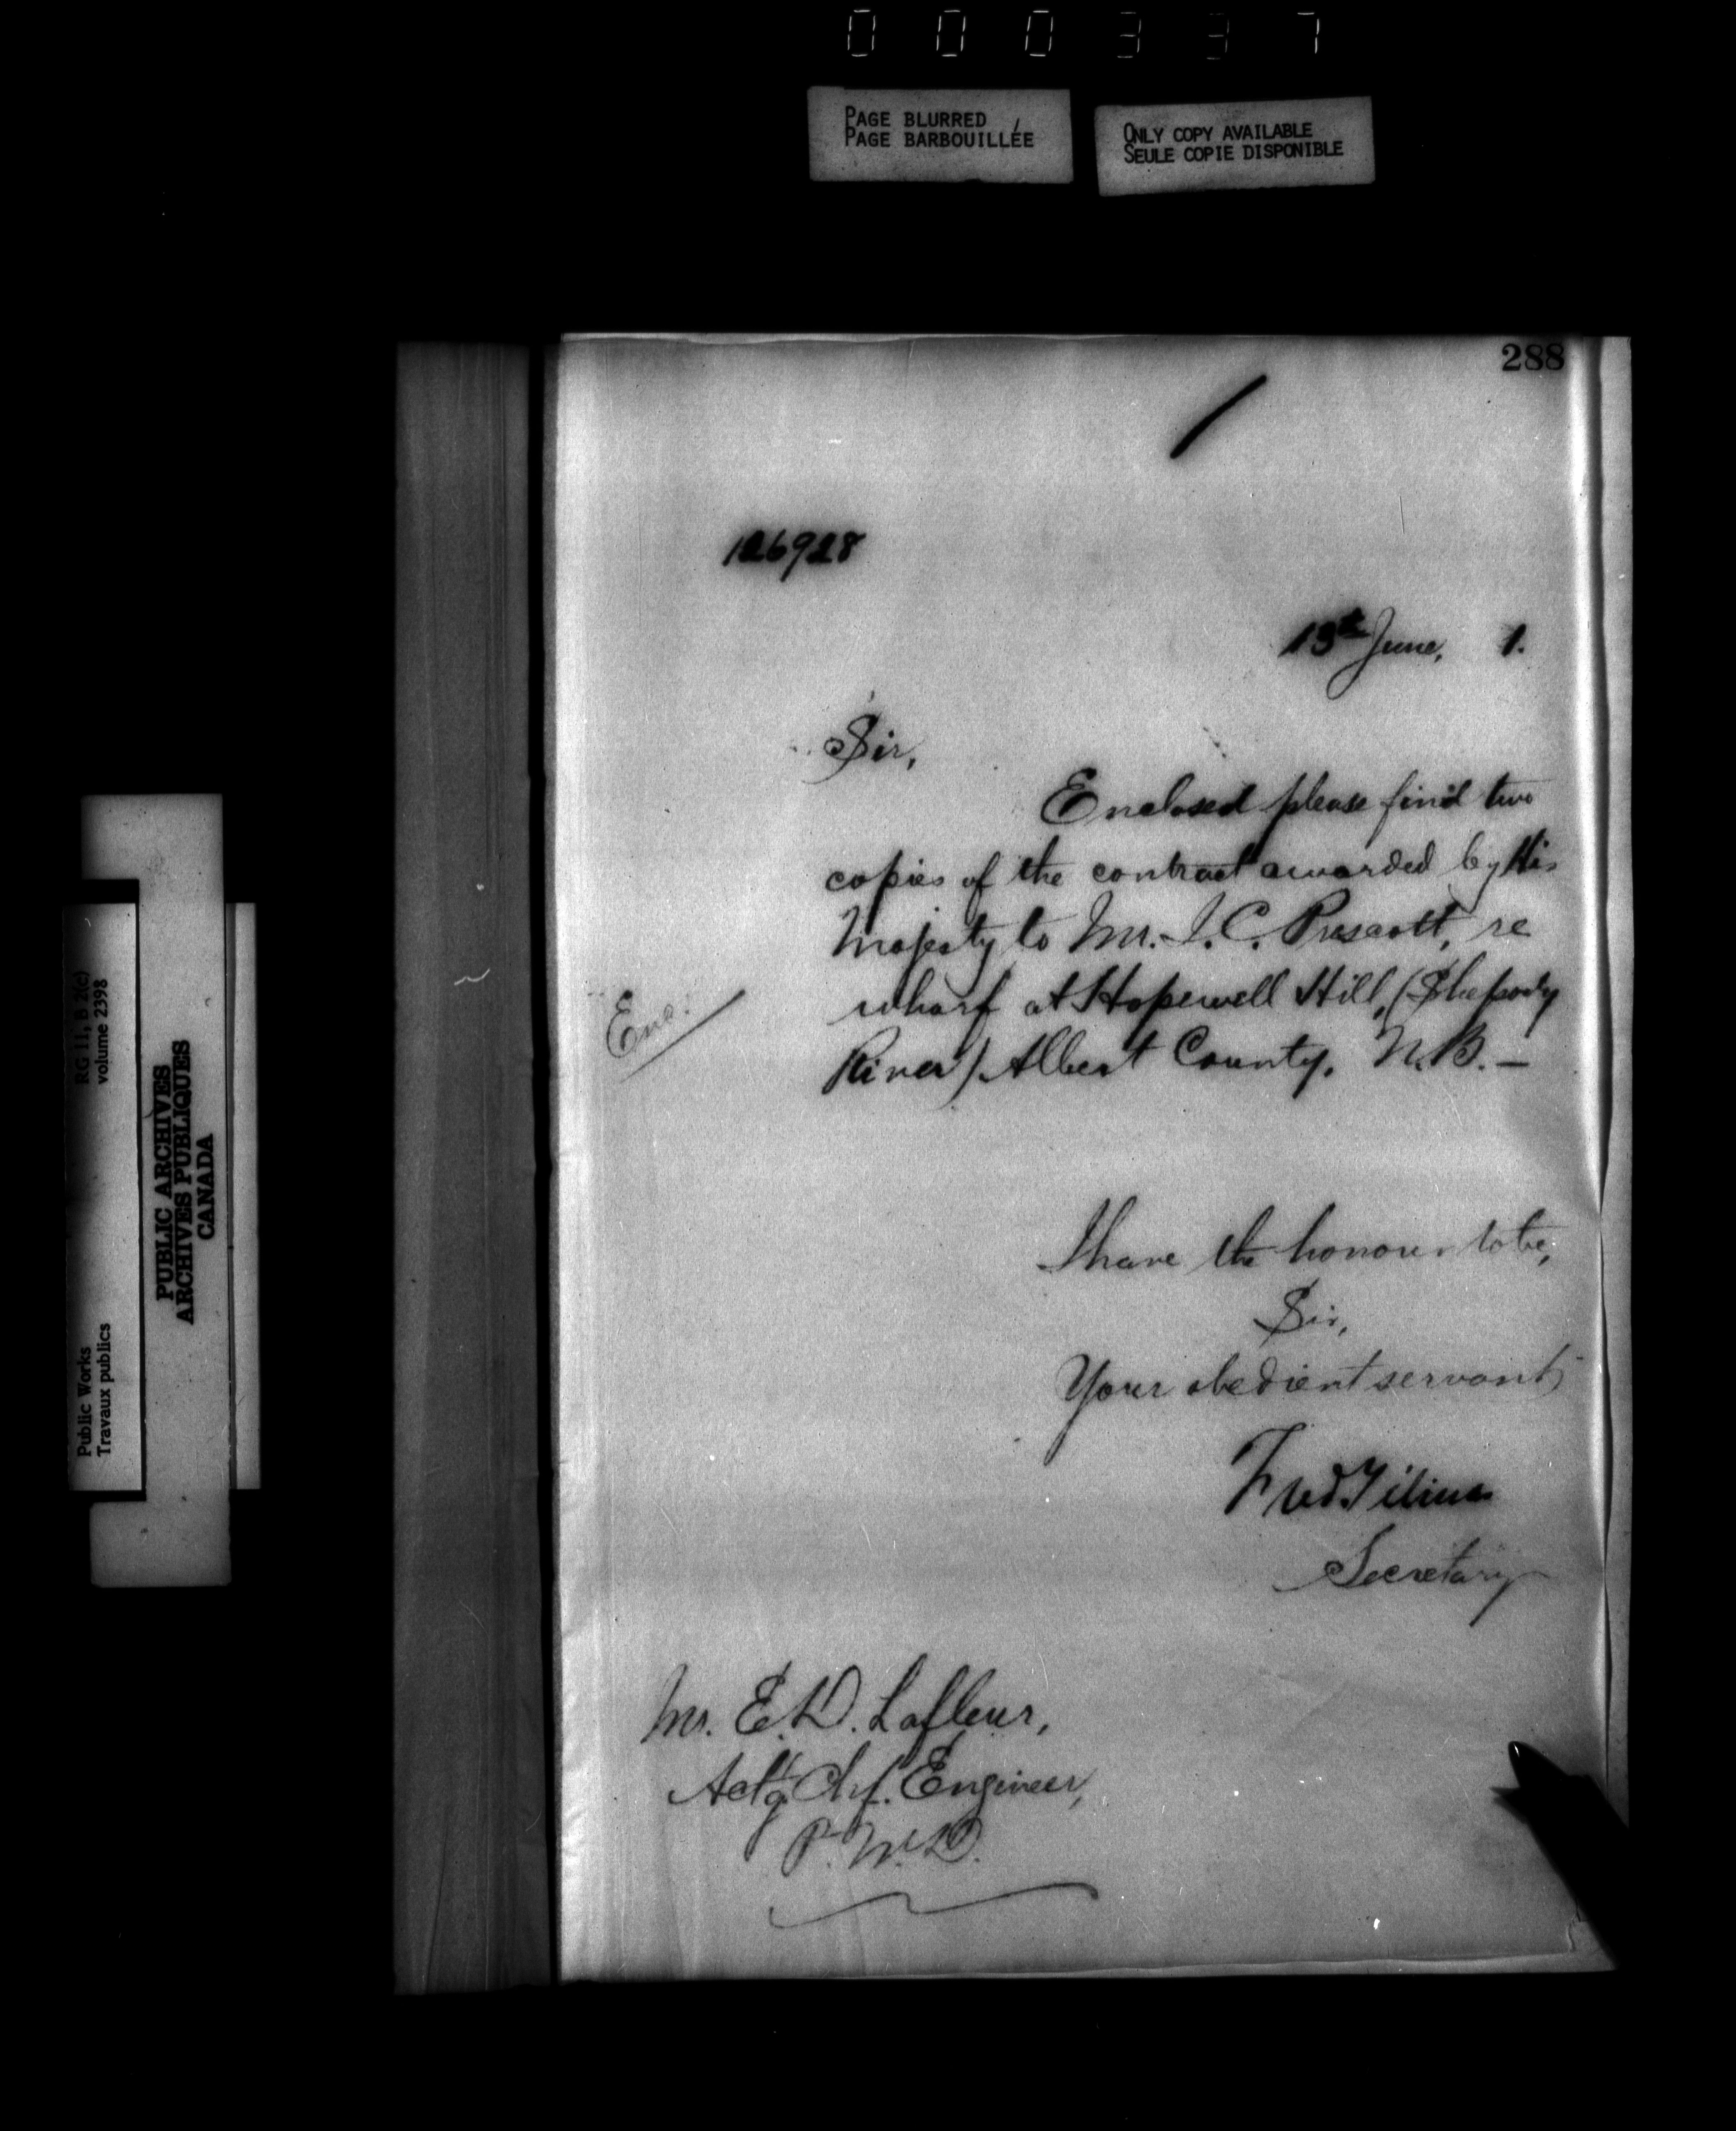 0 0 0 3 3 7
PAGE BLURRED
PAGE BARBOUILLÉE
ONLY COPY AVAILABLE
SEULE COPIE DISPONIBLE
288
126928
13th June, 1.
Sir,
Enclosed please find two
copies of the contract awarded by His
Majesty to Mr. I. C. Prescott, re
wharf at Hopewell Hill, (Shepody
River) Albert County, N.B. —
Enc.
I have the honour to be,
Sir,
Your obedient servant
Fred Gélinas
Secretary
Mr. E. D. Lafleur,
Actg. Chf. Engineer,
P. W. D.
RG 11, B 2(c)
volume 2398
Public Works
Travaux publics
PUBLIC ARCHIVES
ARCHIVES PUBLIQUES
CANADA